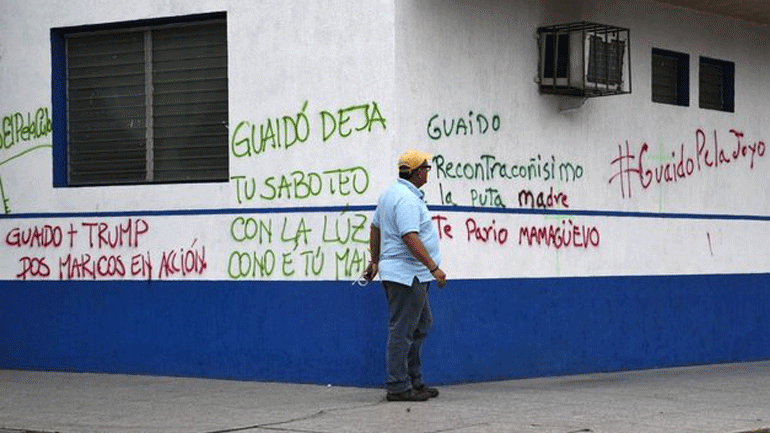 #ElPelabur
GUAIDO + TRUMP
DOS MARICOS EN ACCIÓN
GUAIDÓ DEJA
TU SABOTEO
CON LA LUZ
COÑO É TÚ MA
GUAIDO
Recontracoñisimo
la puta madre
te Pario MAMAGÜEVO
#GuaidoPelaJoyo